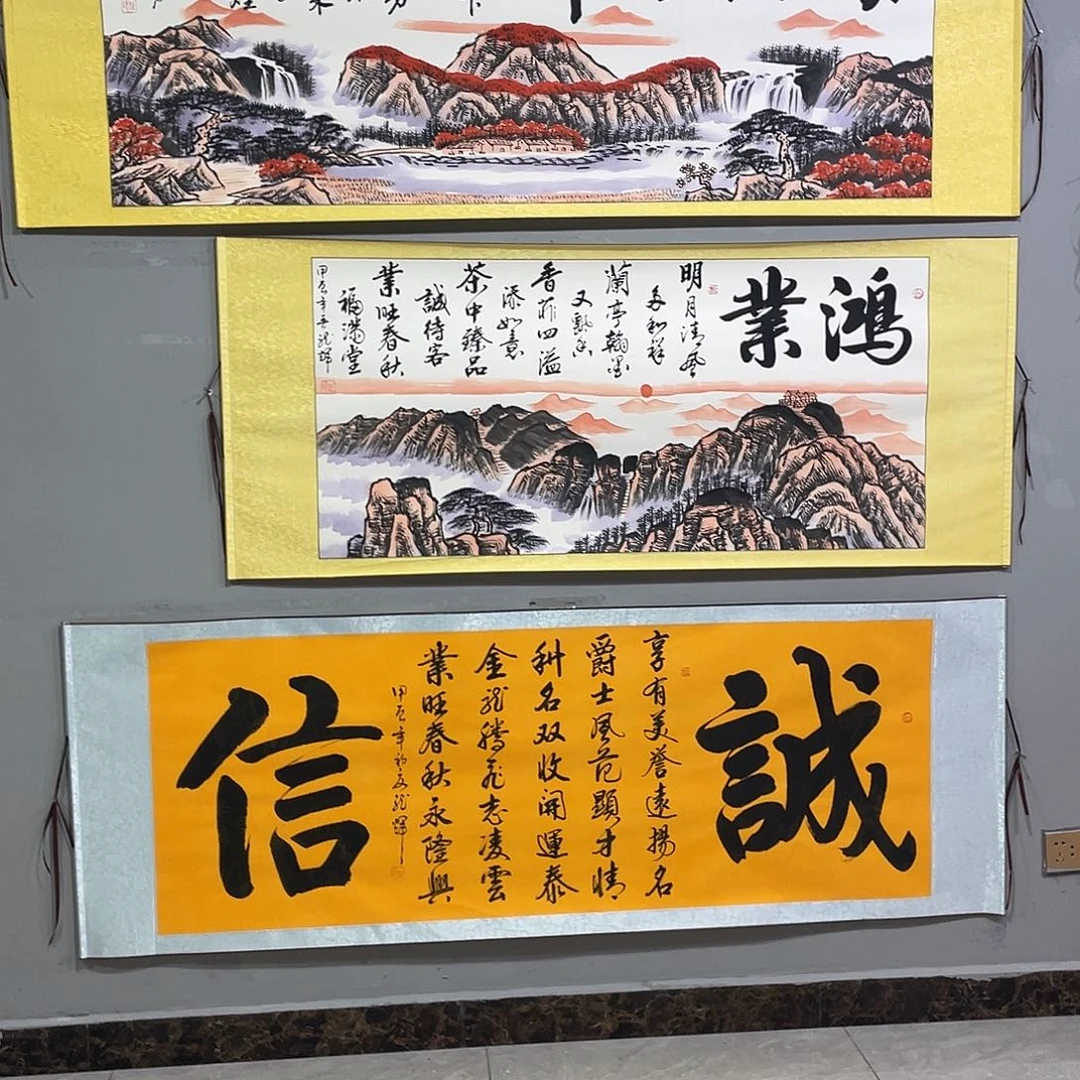 鴻業
明月清風
多和祥
蘭亭翰墨
又飄香
香菲四溢
添如意
茶中臻品
誠待客
業旺春秋
福滿堂
甲辰年
誠
享有美譽遠揚名
爵士風范顯才情
科名双收開運泰
金龍騰飛志凌雲
業旺春秋永隆興
甲辰年初夏
信